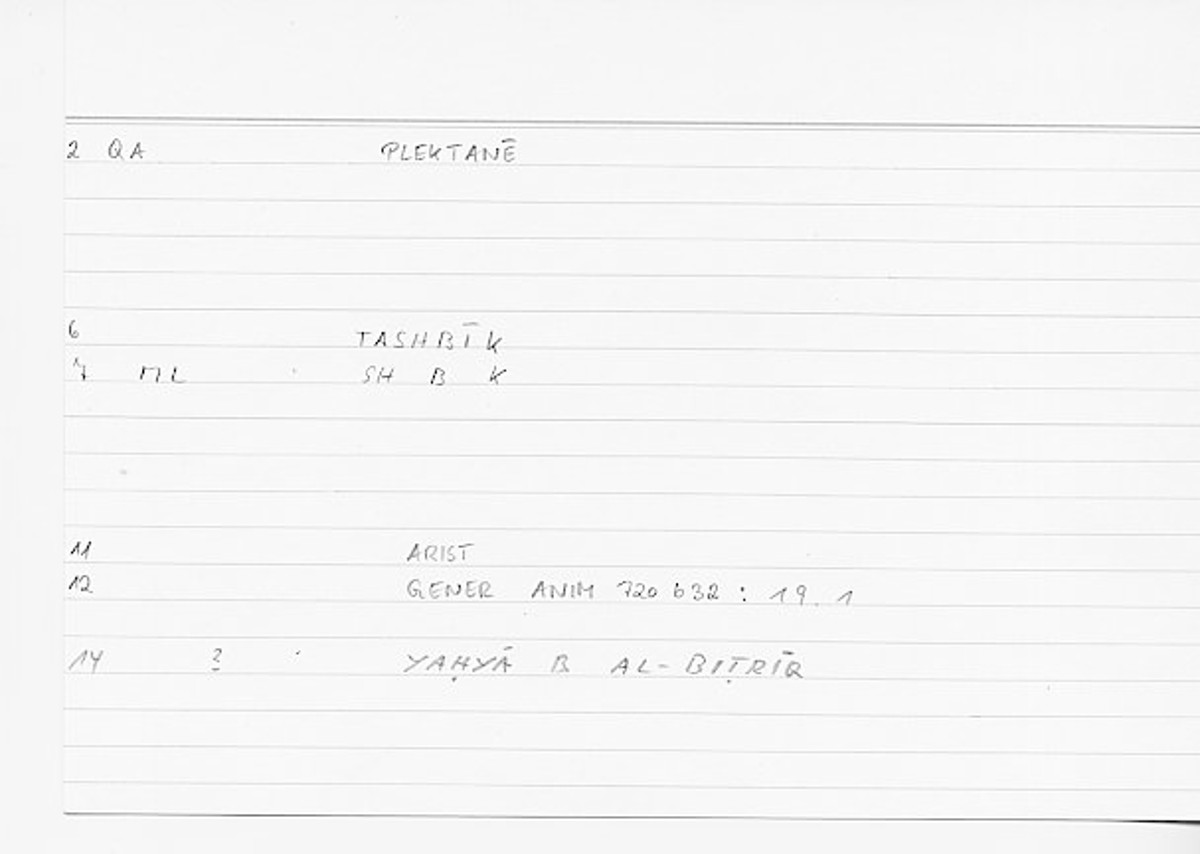 2 QA PLEKTANĒ
6 TASHBĪK
7 ML SH B K
11 ARIST
12 GENER ANIM 720 b32 : 19. 1
14 2 YAḤYĀ B AL-BIṬRĪQ